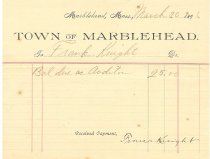 Marblehead, Mass., March 20 18
TOWN OF MARBLEHEAD.
To Frank Knight Dr.
Bal due as Auditor 25.00
Received Payment,
Knight